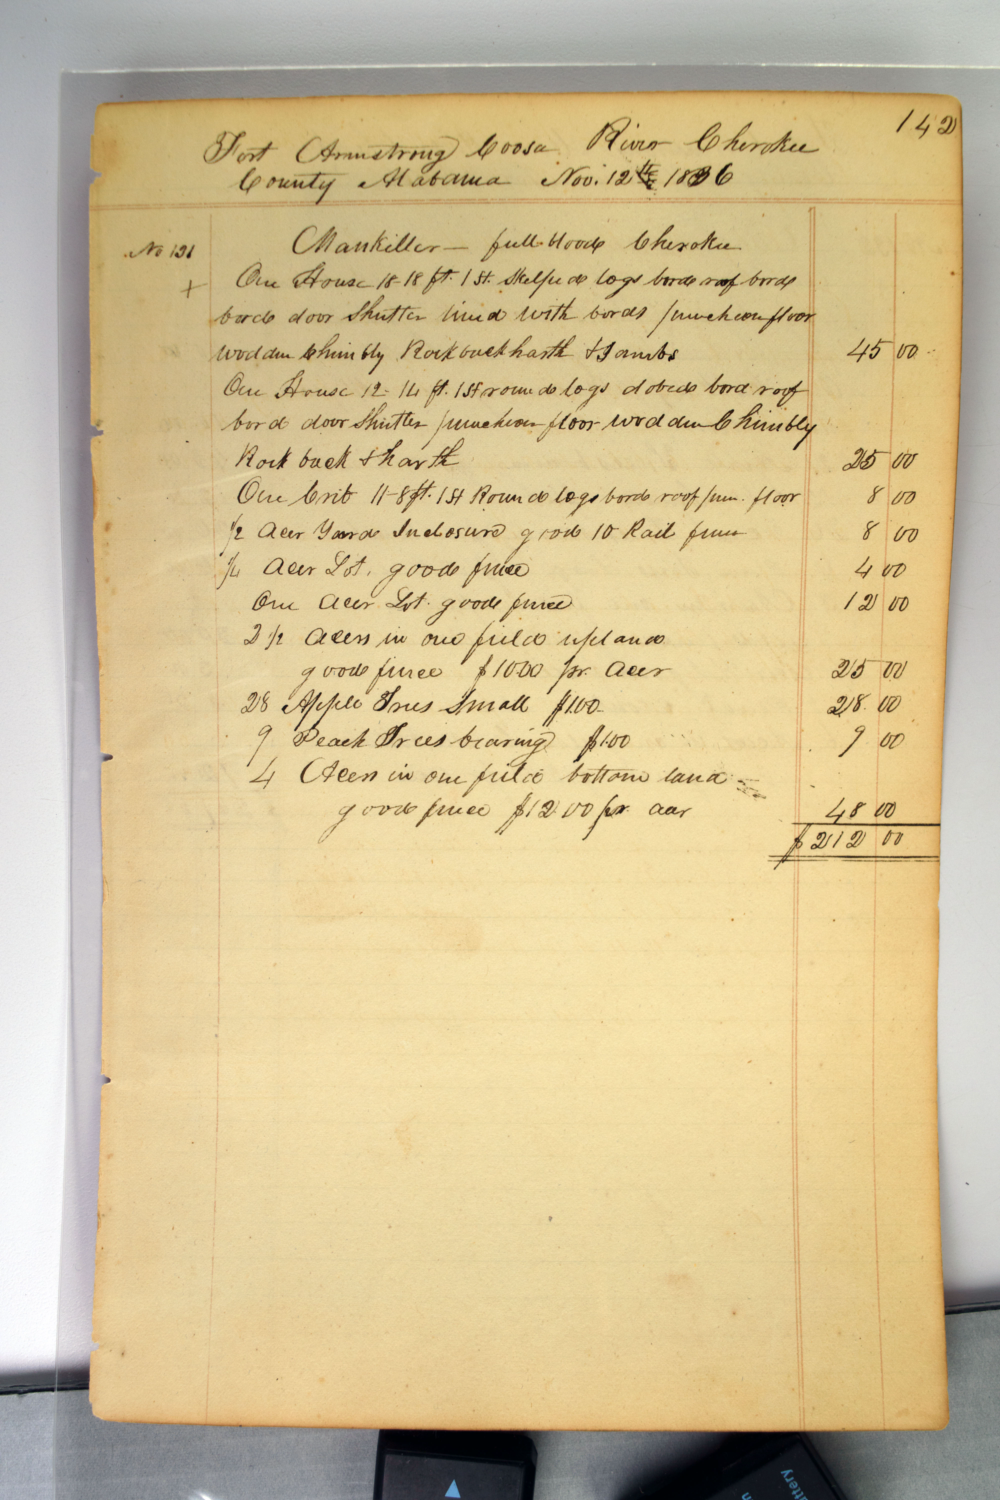 142
Fort Armstrong Coosa River Cherokee
County Alabama Nov. 12th 1836
No 131
Mankiller — full blood Cherokee
+ One House 18-18 ft. 1 St. Skelped logs bord roof bord
bord door Shutter lined with bords puncheon floor
wodden Chimbly Rock back harth & Jambs 45 00
One House 12-14 ft. 1 St round logs dobed bord roof
bord door Shutter puncheon floor wodden Chimbly
Rock back & harth 25 00
One Crib 11-8 ft. 1 St Round logs bord roof pun. floor 8 00
1/2 Acer Yard Inclosure good 10 Rail fence 8 00
1/4 Acer Lot. good fence 4 00
One Acer Lot. good fence 12 00
2 1/2 Acers in one field upland
good fence $10 00 pr. Acer 25 00
28 Apple Trees Small $1.00 28 00
9 Peach Trees bearing $1.00 9 00
4 Acers in one field bottom land
good fence $12 00 pr acer 48 00
$ 212 00
ttery